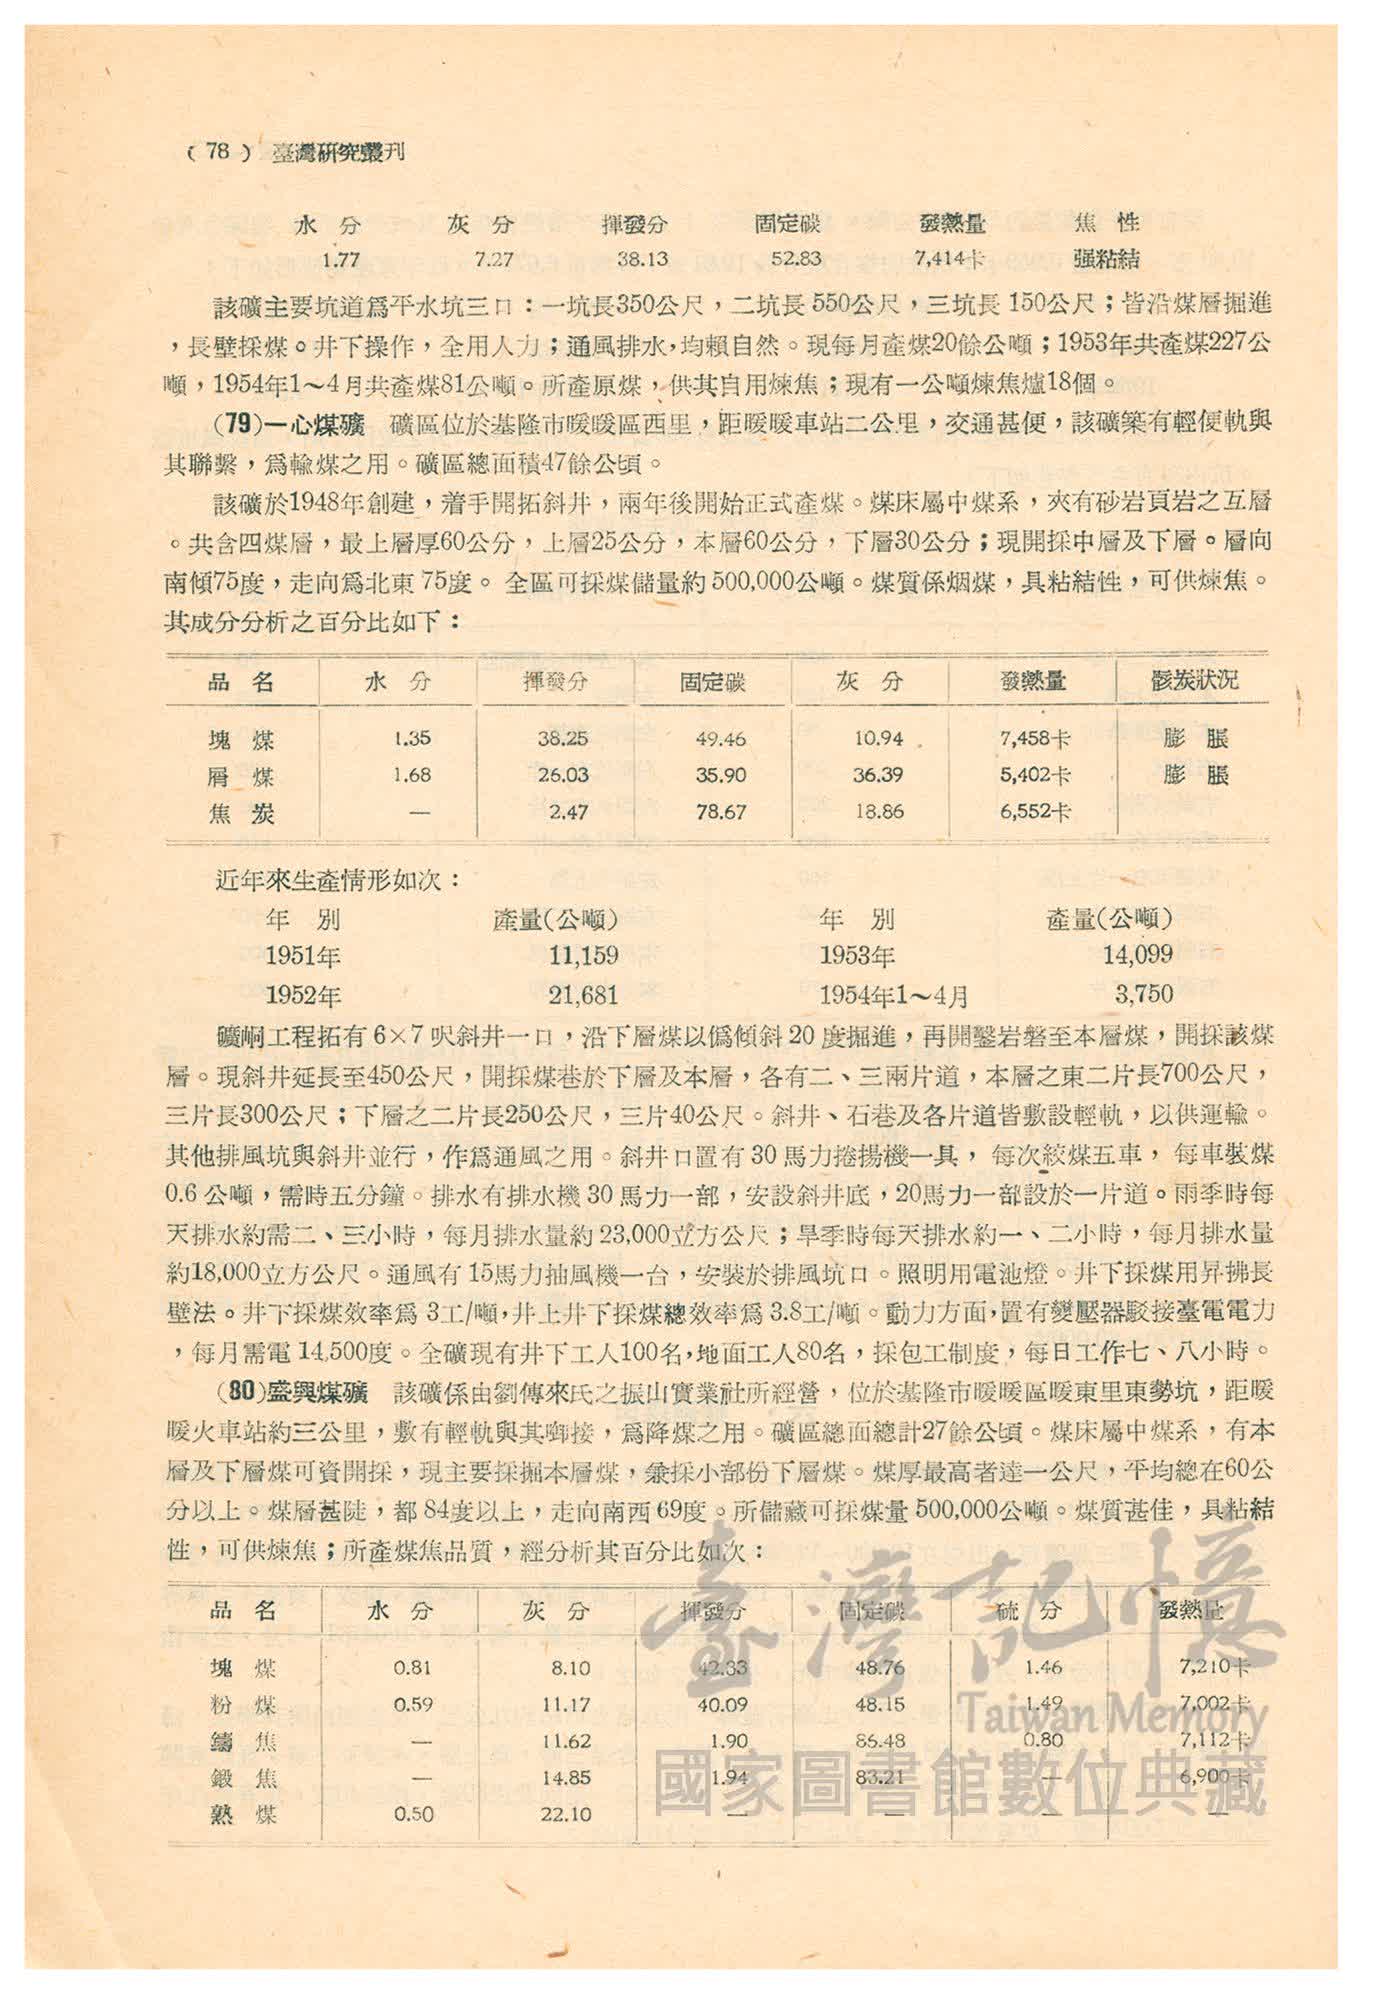 ( 78 ) 臺灣研究叢刊
水 分 灰 分 揮發分 固定碳 發熱量 焦 性
1.77 7.27 38.13 52.83 7,414卡 强粘結
該礦主要坑道爲平水坑三口：一坑長350公尺，二坑長 550公尺，三坑長 150公尺；皆沿煤層掘進
，長壁採煤。井下操作，全用人力；通風排水，均賴自然。現每月產煤20餘公噸；1953年共產煤227公
噸，1954年1～4月共產煤81公噸。所產原煤，供其自用煉焦；現有一公噸煉焦爐18個。
(79)一心煤礦 礦區位於基隆市暖暖區西里，距暖暖車站二公里，交通甚便，該礦築有輕便軌與
其聯繫，爲輸煤之用。礦區總面積47餘公頃。
該礦於1948年創建，着手開拓斜井，兩年後開始正式產煤。煤床屬中煤系，夾有砂岩頁岩之互層
。共含四煤層，最上層厚60公分，上層25公分，本層60公分，下層30公分；現開採中層及下層。層向
南傾75度，走向爲北東 75度。 全區可採煤儲量約 500,000公噸。煤質係烟煤，具粘結性，可供煉焦。
其成分分析之百分比如下：
品 名 水 分 揮發分 固定碳 灰 分 發熱量 骸炭狀况
塊 煤 1.35 38.25 49.46 10.94 7,458卡 膨 脹
屑 煤 1.68 26.03 35.90 36.39 5,402卡 膨 脹
焦 炭 — 2.47 78.67 18.86 6,552卡
近年來生產情形如次：
年 別 產量(公噸) 年 別 產量(公噸)
1951年 11,159 1953年 14,099
1952年 21,681 1954年1～4月 3,750
礦峒工程拓有 6×7 呎斜井一口，沿下層煤以僞傾斜 20 度掘進，再開鑿岩磐至本層煤，開採該煤
層。現斜井延長至450公尺，開採煤巷於下層及本層，各有二、三兩片道，本層之東二片長700公尺，
三片長300公尺；下層之二片長250公尺，三片40公尺。斜井、石巷及各片道皆敷設輕軌，以供運輸。
其他排風坑與斜井並行，作爲通風之用。斜井口置有 30 馬力捲揚機一具， 每次絞煤五車， 每車裝煤
0.6 公噸，需時五分鐘。排水有排水機 30 馬力一部，安設斜井底，20馬力一部設於一片道。雨季時每
天排水約需二、三小時，每月排水量約 23,000立方公尺；旱季時每天排水約一、二小時，每月排水量
約18,000立方公尺。通風有 15馬力抽風機一台，安裝於排風坑口。照明用電池燈。井下採煤用昇拂長
壁法。井下採煤效率爲 3工/噸，井上井下採煤總效率爲 3.8工/噸。動力方面，置有變壓器駁接臺電電力
，每月需電 14,500度。全礦現有井下工人100名，地面工人80名，採包工制度，每日工作七、八小時。
(80)盛興煤礦 該礦係由劉傳來氏之振山實業社所經營，位於基隆市暖暖區暖東里東勢坑，距暖
暖火車站約三公里，敷有輕軌與其啣接，爲降煤之用。礦區總面總計27餘公頃。煤床屬中煤系，有本
層及下層煤可資開採，現主要採掘本層煤，兼採小部份下層煤。煤厚最高者達一公尺，平均總在60公
分以上。煤層甚陡，都 84度以上，走向南西 69度。所儲藏可採煤量 500,000公噸。煤質甚佳，具粘結
性，可供煉焦；所產煤焦品質，經分析其百分比如次：
品 名 水 分 灰 分 揮發分 固定碳 硫 分 發熱量
塊 煤 0.81 8.10 42.33 48.76 1.46 7,210卡
粉 煤 0.59 11.17 40.09 48.15 1.49 7,002卡
鑄 焦 — 11.62 1.90 86.48 0.80 7,112卡
鍛 焦 — 14.85 1.94 83.21 — 6,900卡
熟 煤 0.50 22.10 — — — —
臺灣記憶
Taiwan Memory
國家圖書館數位典藏